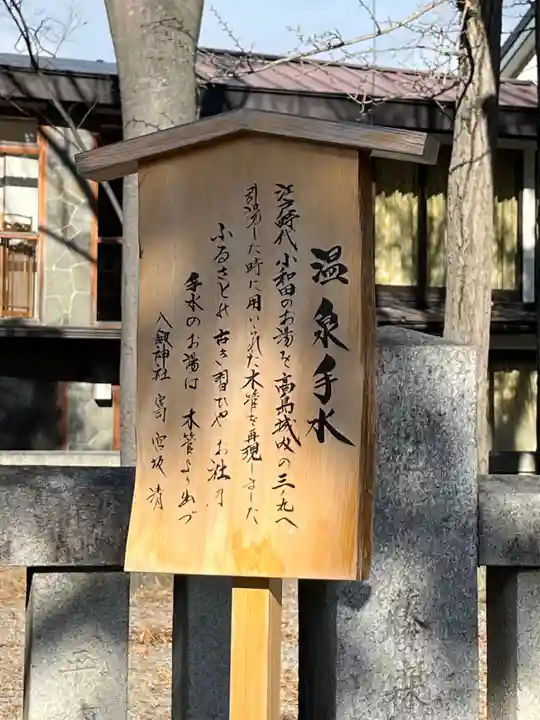 温泉手水
江戸時代 小和田のお湯を高島城内の三ノ丸へ
引湯した時に用いられた木管を再現しました
ふるさとの古き習ひや お社の
手水のお湯は 木管より出づ
八剱神社 宮司 宮坂 清